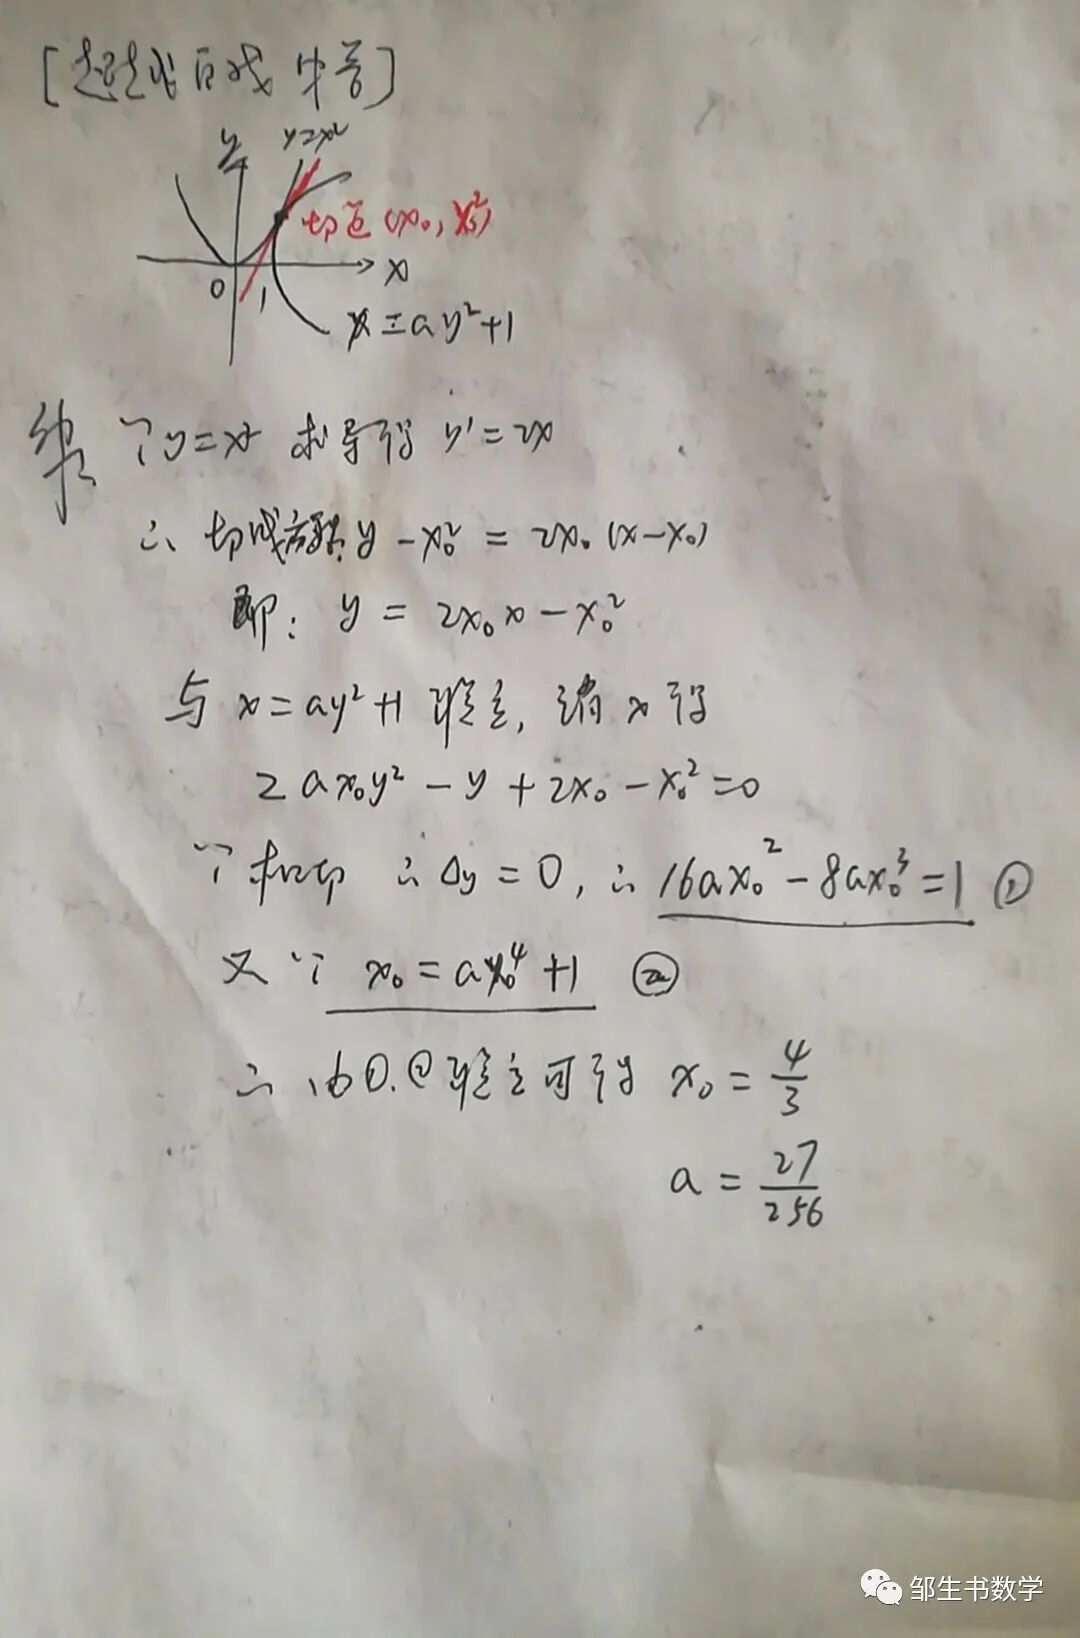 y
y=x²
切点(x₀, x₀²)
0
1
x
x=ay²+1
解 ∵y=x² 求导得 y'=2x
∴ 切线方程: y-x₀²=2x₀(x-x₀)
即: y=2x₀x-x₀²
与 x=ay²+1 联立, 消x得
2ax₀y²-y+2x₀-x₀²=0
∵相切 ∴Δy=0, ∴16ax₀²-8ax₀³=1 ①
又∵ x₀=ax₀⁴+1 ②
∴ 由①.②联立可得 x₀=4/3
a=27/256
邹生书数学